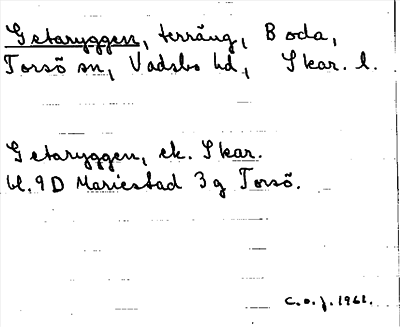 Getaryggen, terräng, Boda,
Torsö sn, Vadsbo hd, Skar. l.
Getaryggen, ek. Skar.
bl. 9D Mariestad 3g Torsö.
C.O.J. 1961.